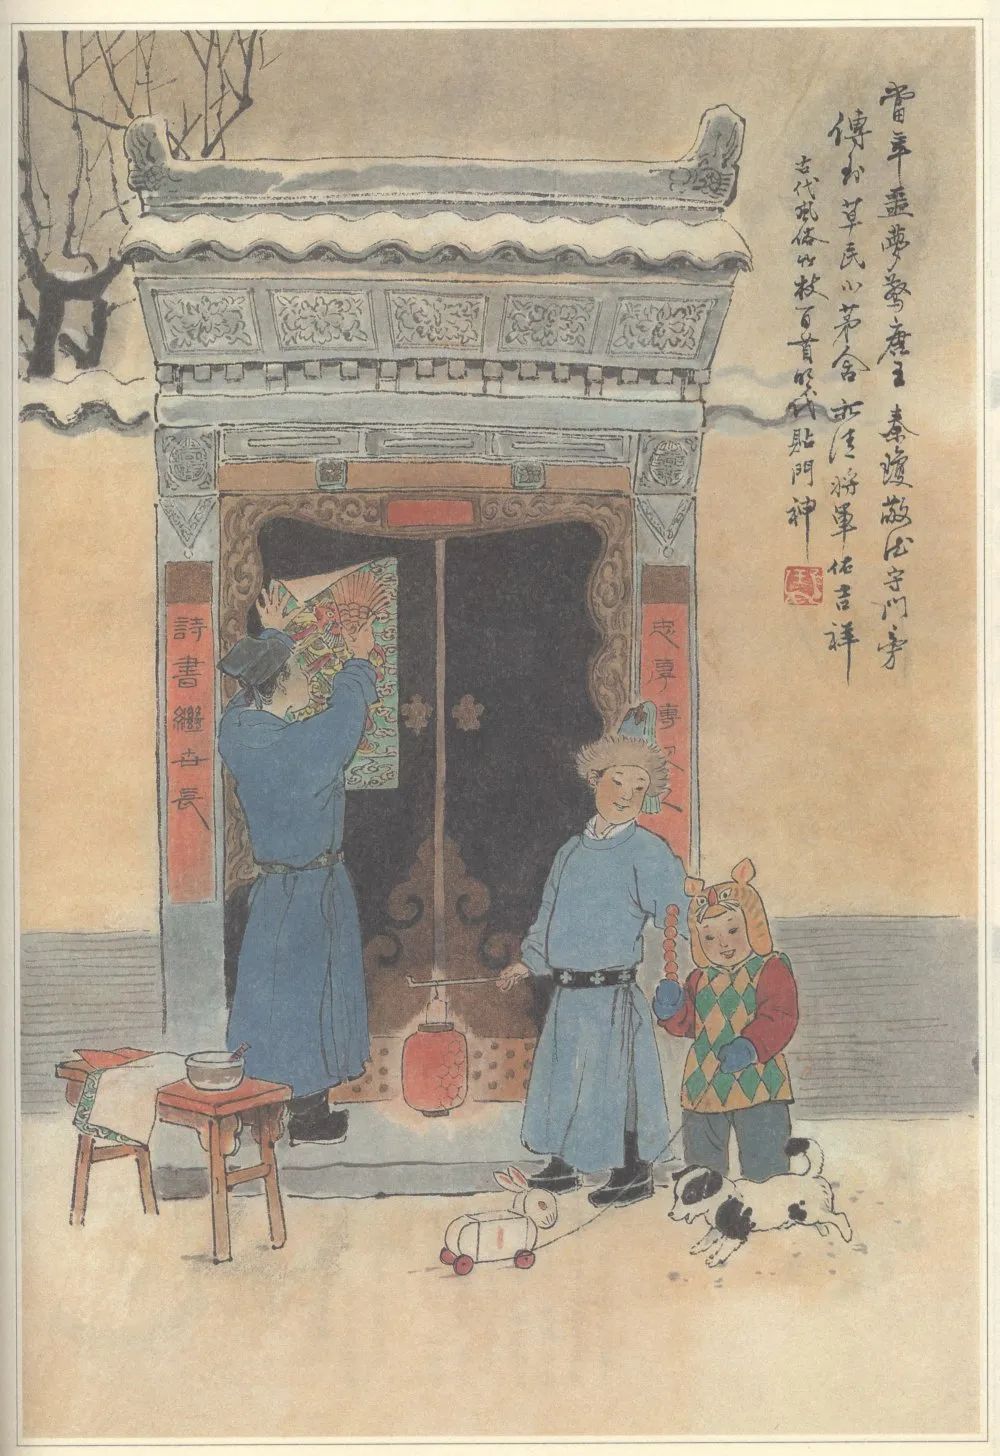 當年噩夢驚唐王 秦瓊敬德守門旁
傳到草民小茅舍 亦請將軍佑吉祥
古代風俗竹枝百首明代貼門神
忠厚傳家
詩書繼世長